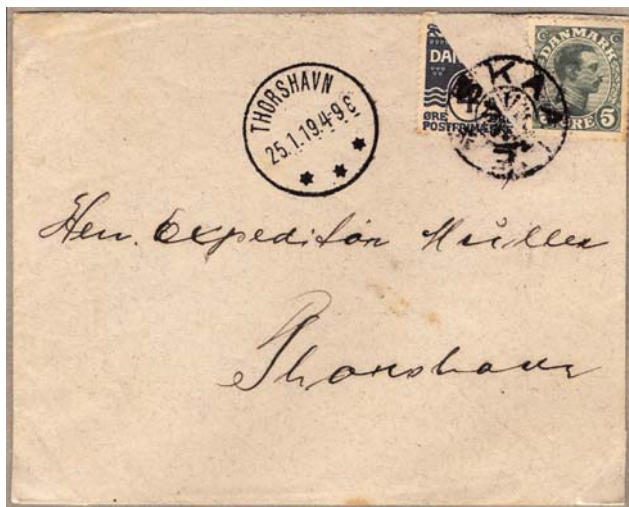 THORSHAVN
25.1.19.4-9 E
DAN
ØRE
POSTFRIMÆRKE
DANMARK
ØRE 5
KAA
Herr. Expeditör Müller
Thorshavn